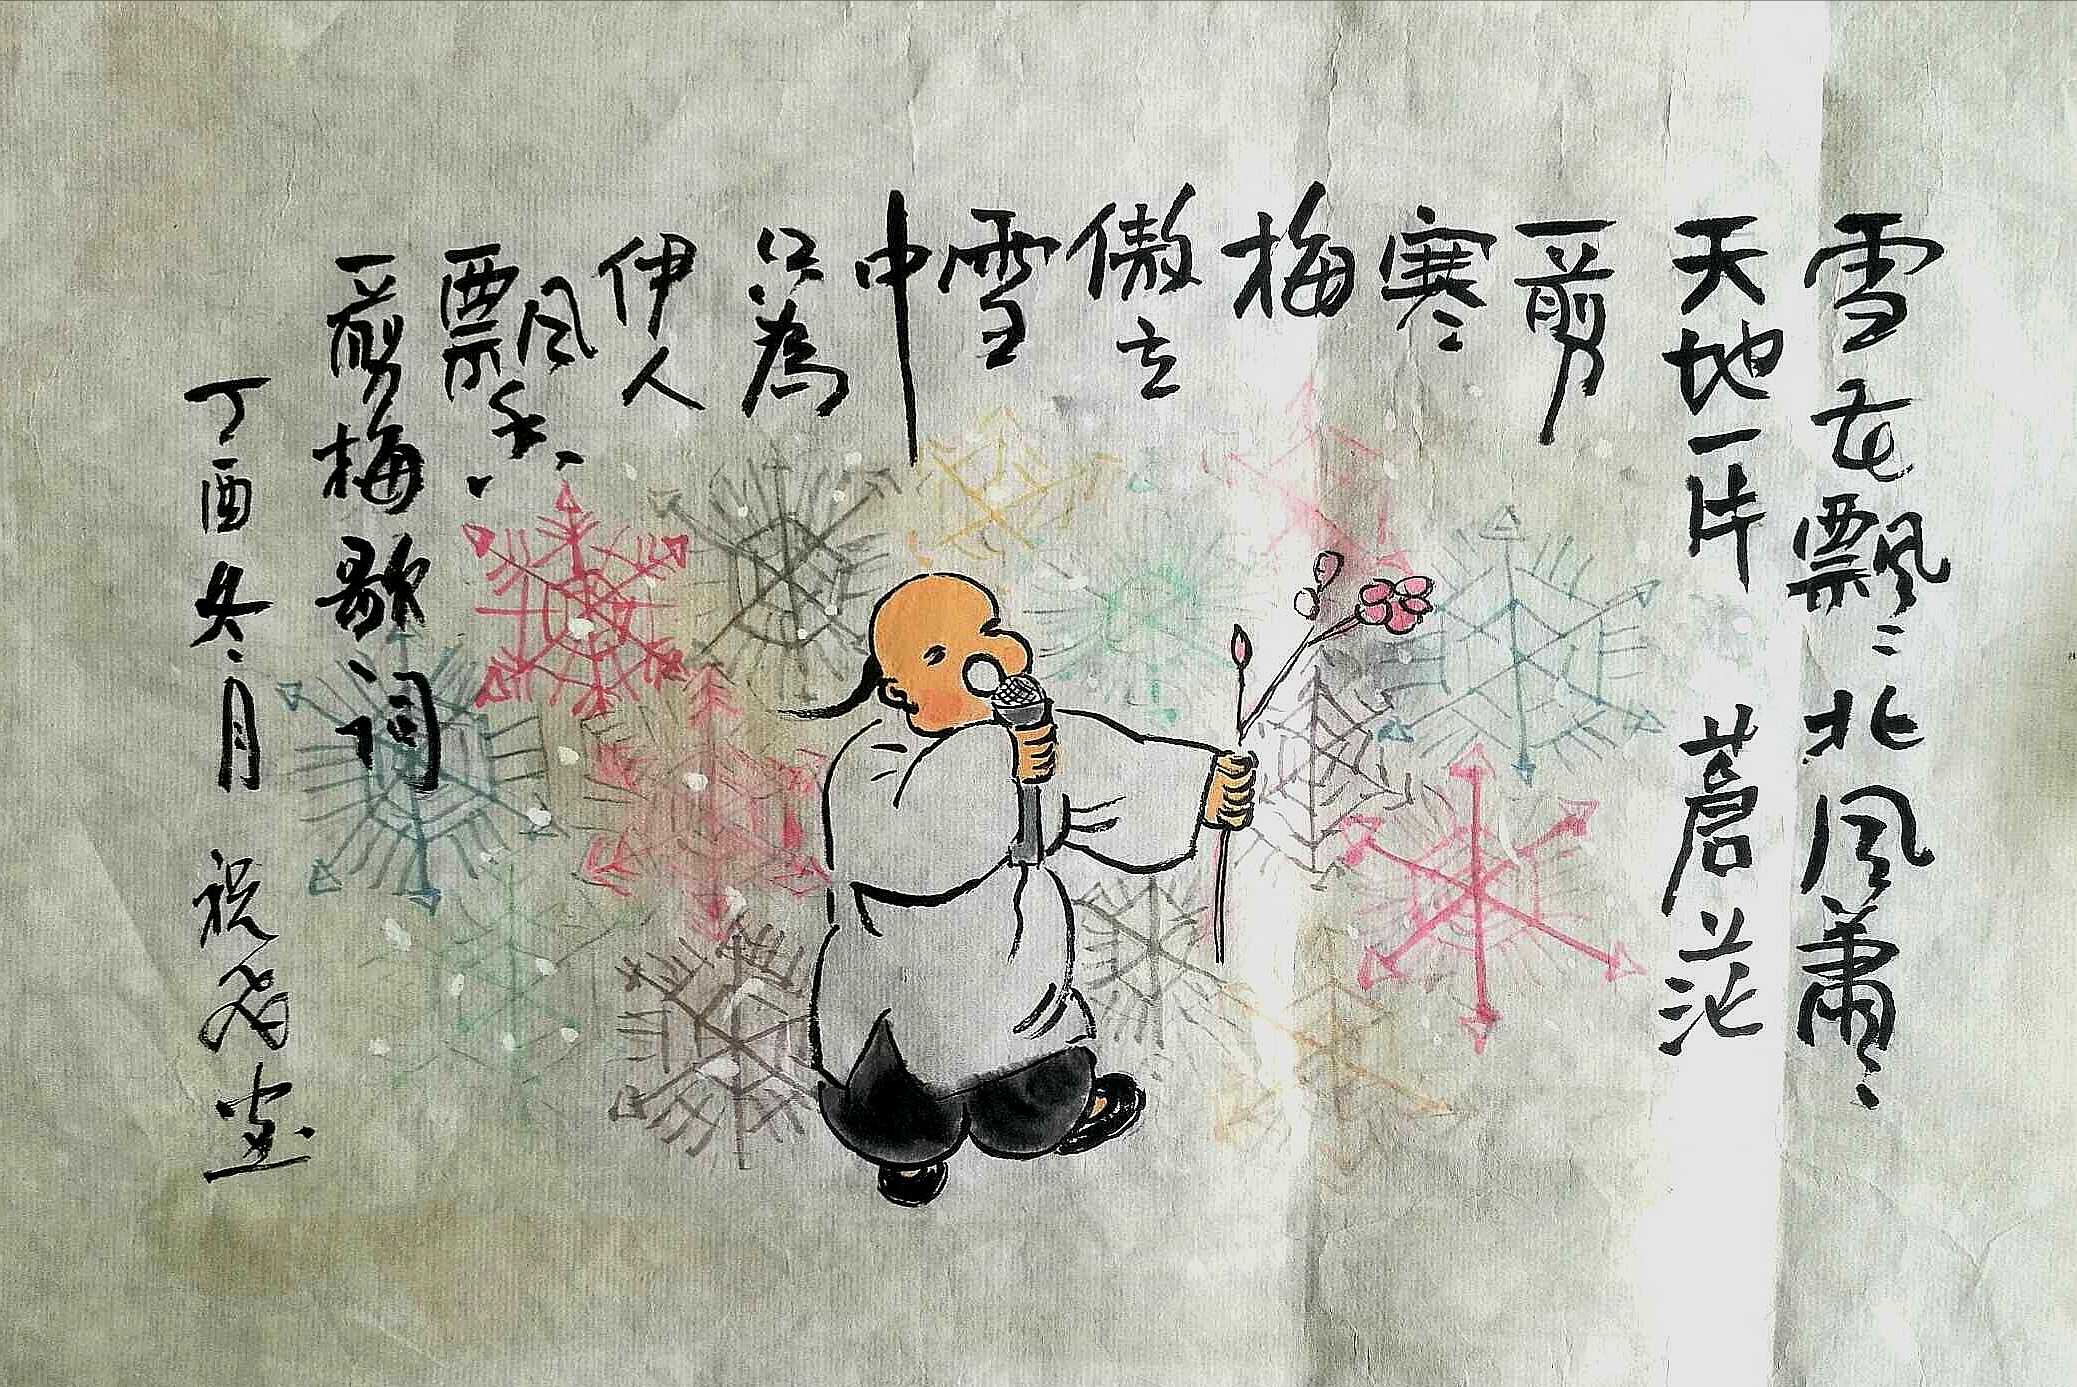 雪花飘〻北风萧〻
天地一片蒼茫
一剪
寒
梅
傲立
雪
中
只為
伊人
飘香
一剪梅歌词
丁酉冬月祝